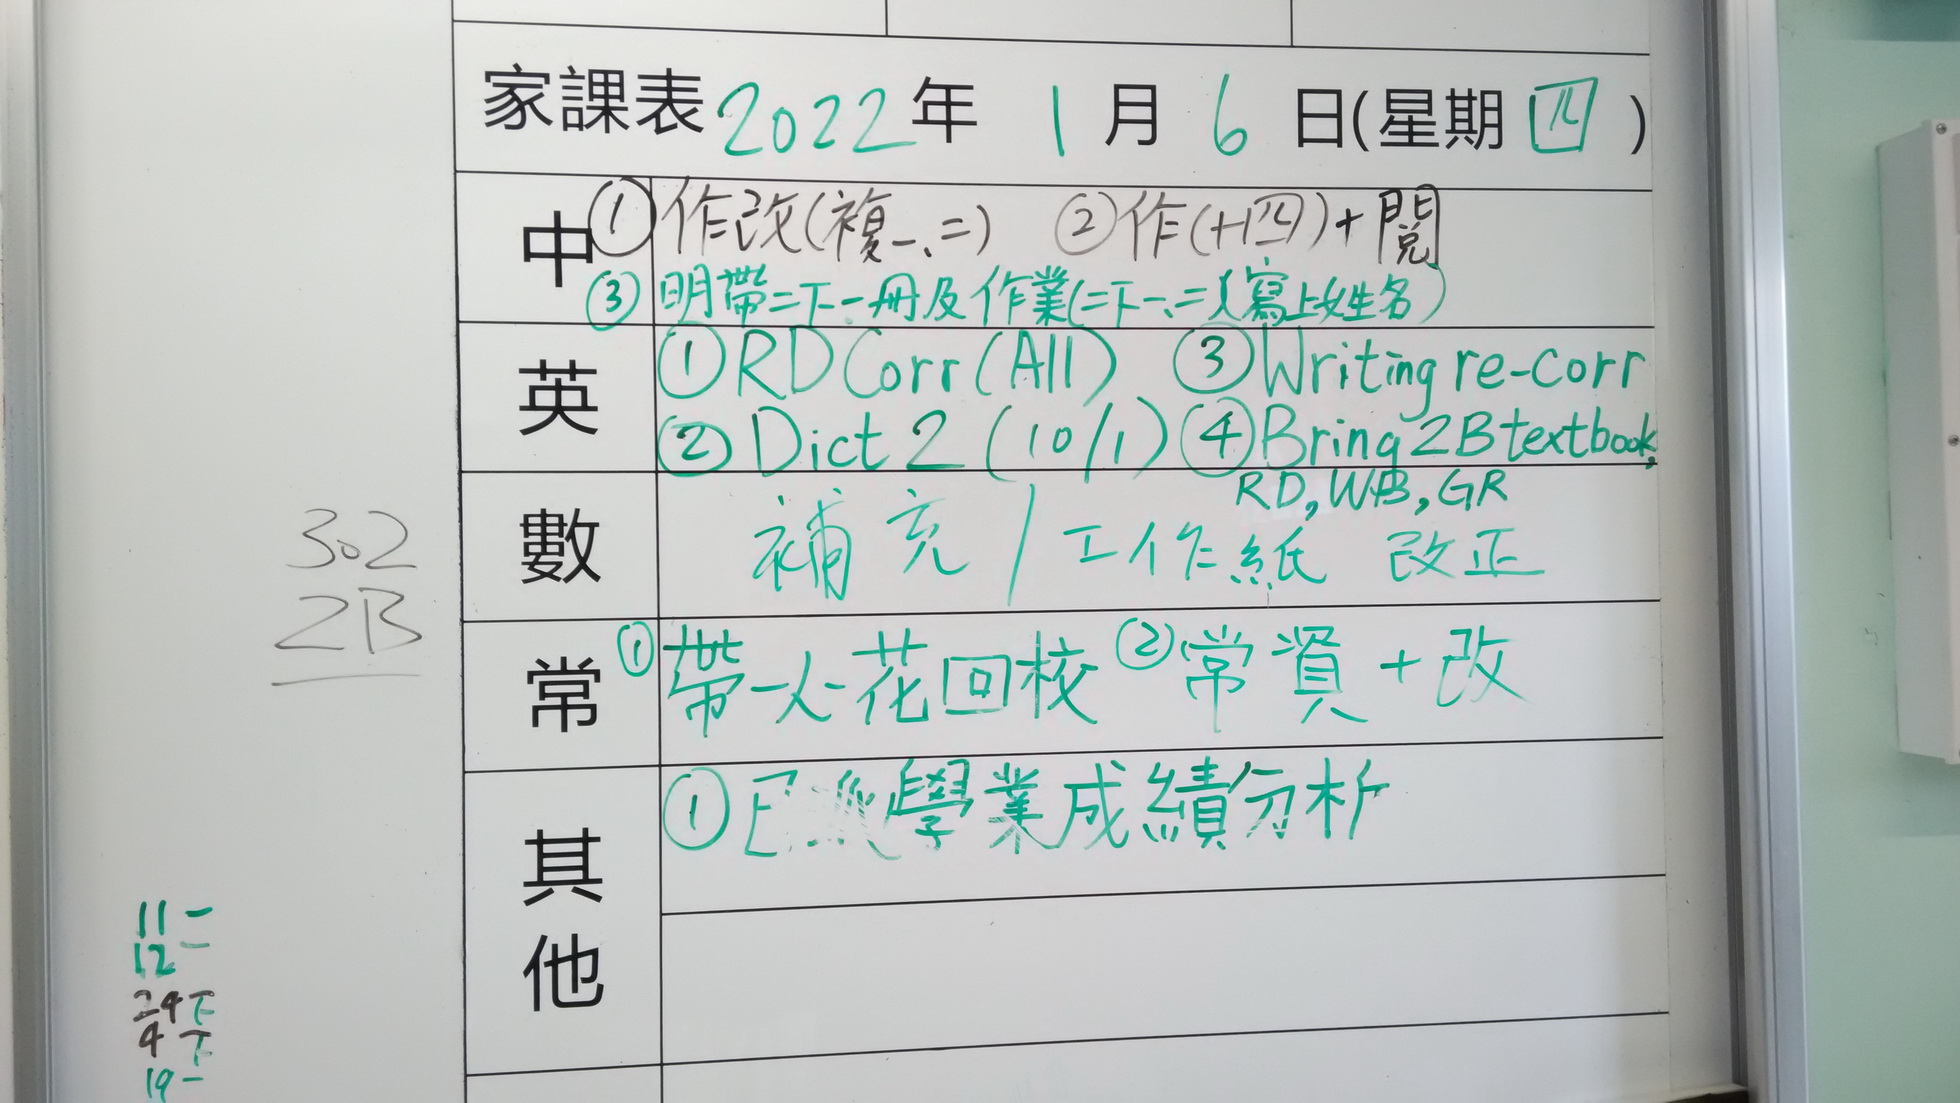 家課表 2022年 1月 6日(星期四)
中 ①作改(複一、二) ②作(十四)+閱
③明帶二下一冊及作業(二下一、二)(寫上姓名)
英 ①RD Corr (All) ③Writing re-corr
②Dict 2 (10/1) ④Bring 2B textbook,
RD, WB, GR
數 補充/工作紙 改正
常 ①帶一人一花回校 ②常資+改
其他 ①已派學業成績分析
302
2B
11 一
12 二
24 下
4 下
19 一